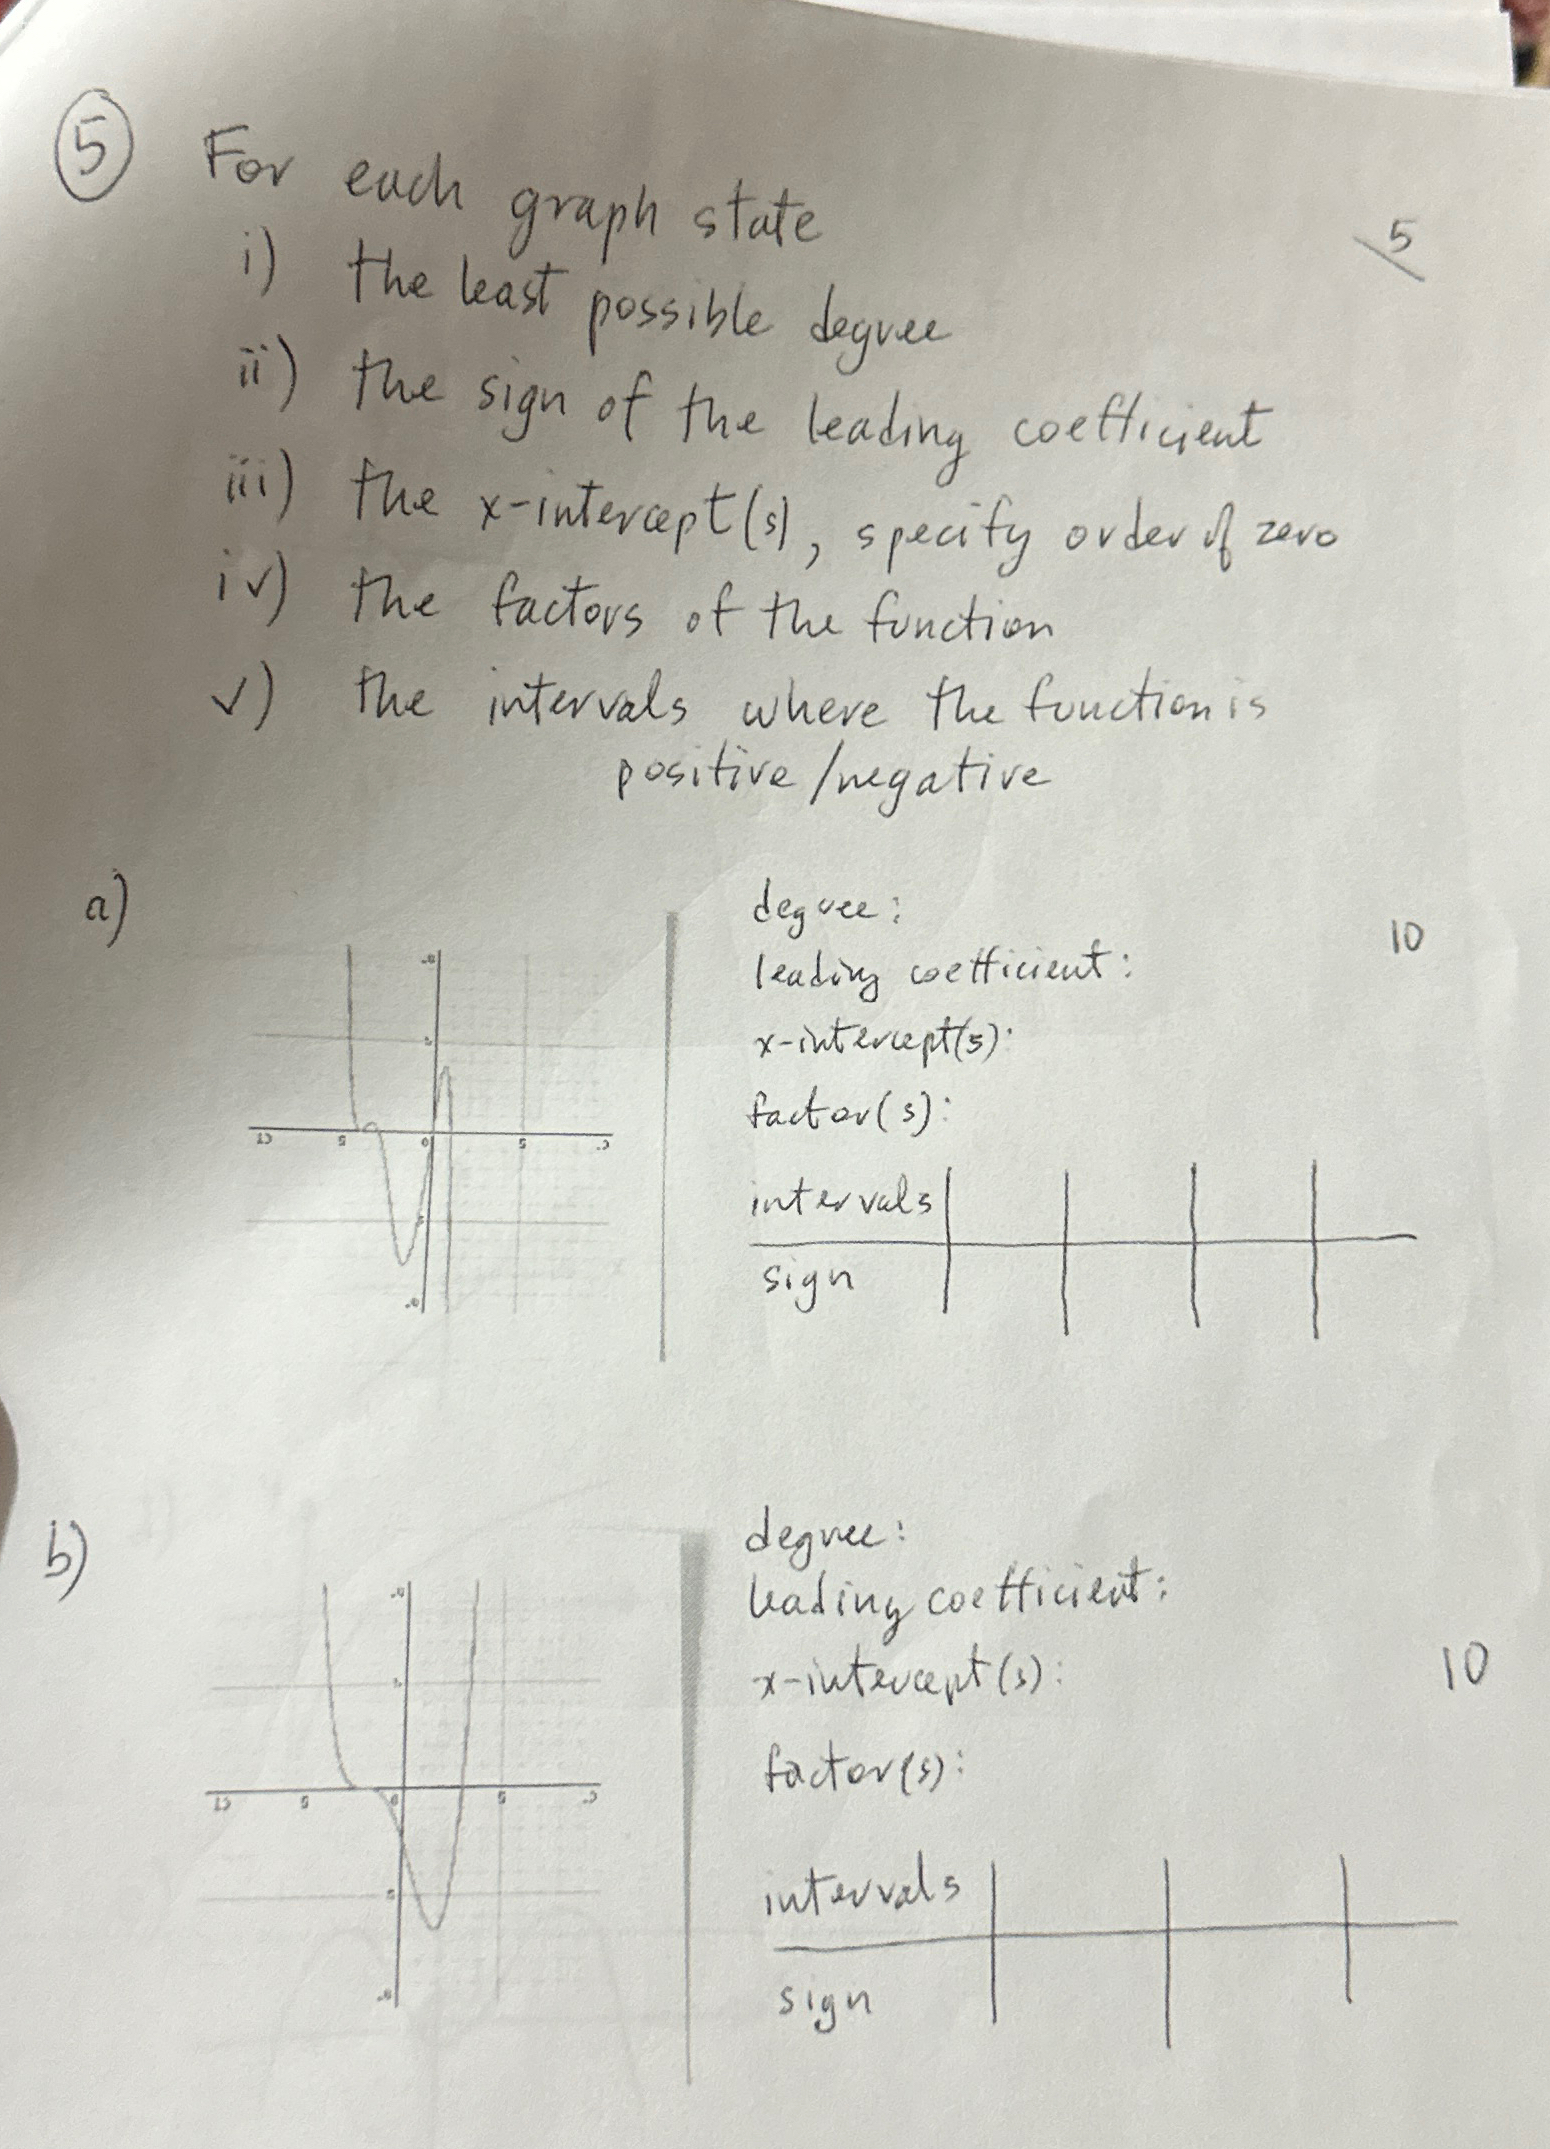 5 For each graph state
5
i) the least possible degree
ii) the sign of the leading coefficient
iii) the x-intercept(s), specify order of zero
iv) the factors of the function
v) the intervals where the function is
positive/negative
a)
degree:
10
leading coefficient:
x-intercept(s):
factor(s):
intervals
sign
5
0
5
b)
degree:
leading coefficient:
x-intercept(s):
10
factor(s):
intervals
sign
5
0
5